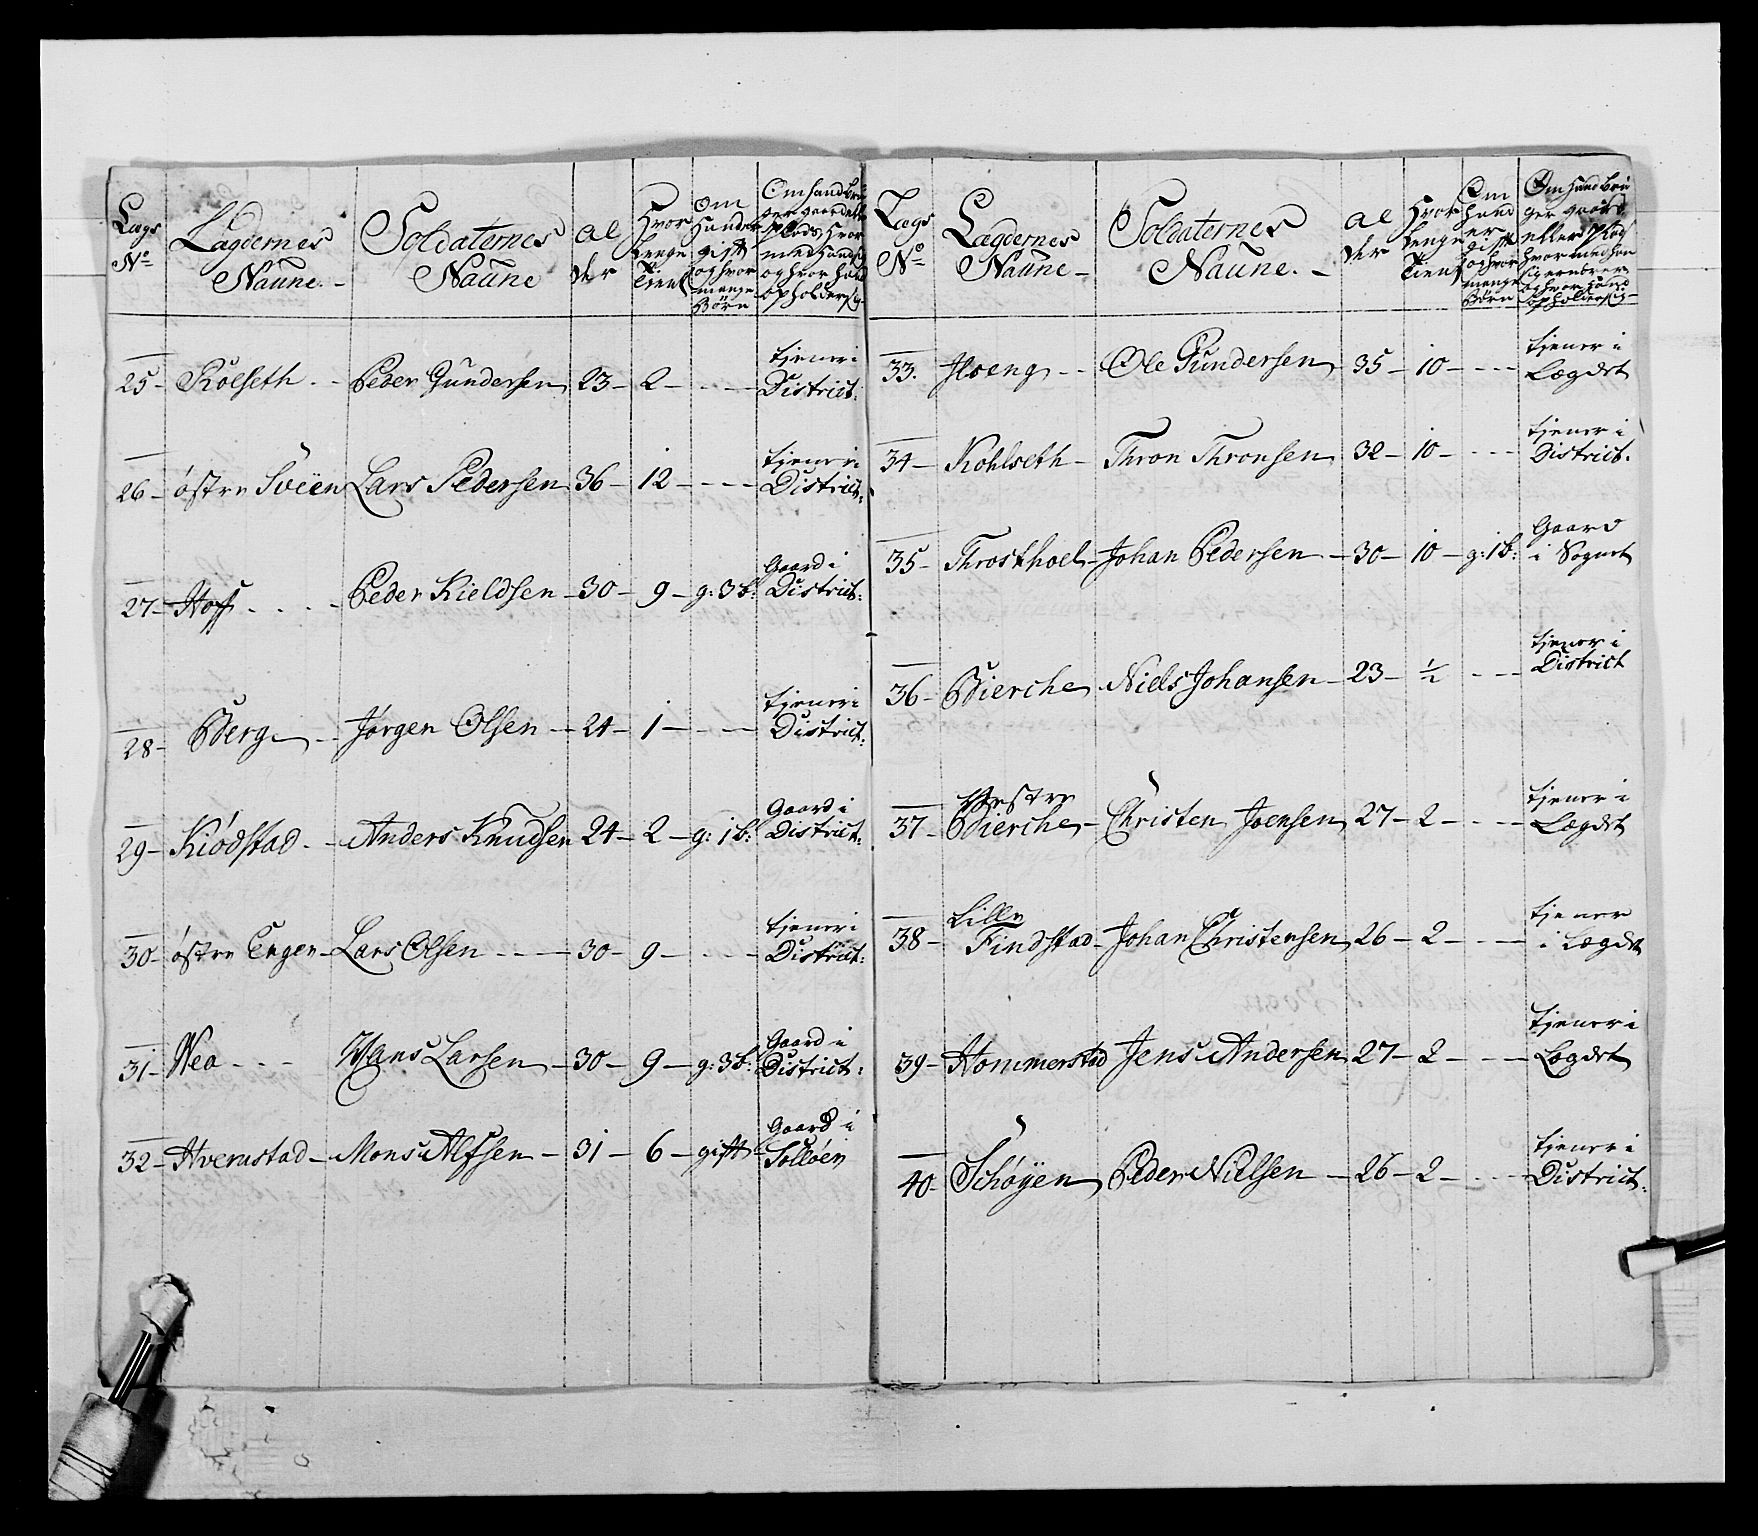 Lægs No
Lagdernes Naune
Soldaternes Naune
Al der
Hvor lenge Tient
Om Hand er gift og hvor mange Børn
Om hand bru ger gaard eller Plads hvor med Hand og hvor Hand opholder sig
25 Kolseth Peder Gundersen 23 2 tjener i District
26 østre Svëen Lars Pedersen 36 12 tjener i District
27 Hoff Peder Kieldsen 30 9 g: 3 b: Gaard i District
28 Berg Jørgen Olsen 24 1 tjener i District
29 Kiødstad Anders Knudsen 24 2 g: 1 b: Gaard i District
30 østre Engen Lars Olsen 30 9 tjener i District
31 Neo Hans Larsen 30 9 g: 3 b: Gaard i District
32 Hverustad Mons Alfsen 31 6 gift Gaard i Solløer
Lægs No
Lægdernes Naune
Soldaternes Naune
Al der
Hvor lenge Tient
Om hand er gift og hvor mange Børn
Om hand bru ger gaard eller Plads hvor med han sig ernærer og hvor Hand opholder sig
33 Ole Gundersen 35 10 tjener i Lægdet
34 Kohlseth Thron Thronsen 32 10 tjener i District
35 Throsthoel Johan Pedersen 30 10 g: 1 b: Gaard i Sognet
36 Bierche Niels Johansen 23 1/2 tjener i District
37 Vestre Bierche Christen Joensen 27 2 tjener i Lægdet
38 Lille Findstad Johan Christensen 26 2 tjener i Lægdet
39 Hommerstad Jens Andersen 27 2 tjener i Lægdet
40 Schøyen Peder Nielsen 26 2 tjener i District